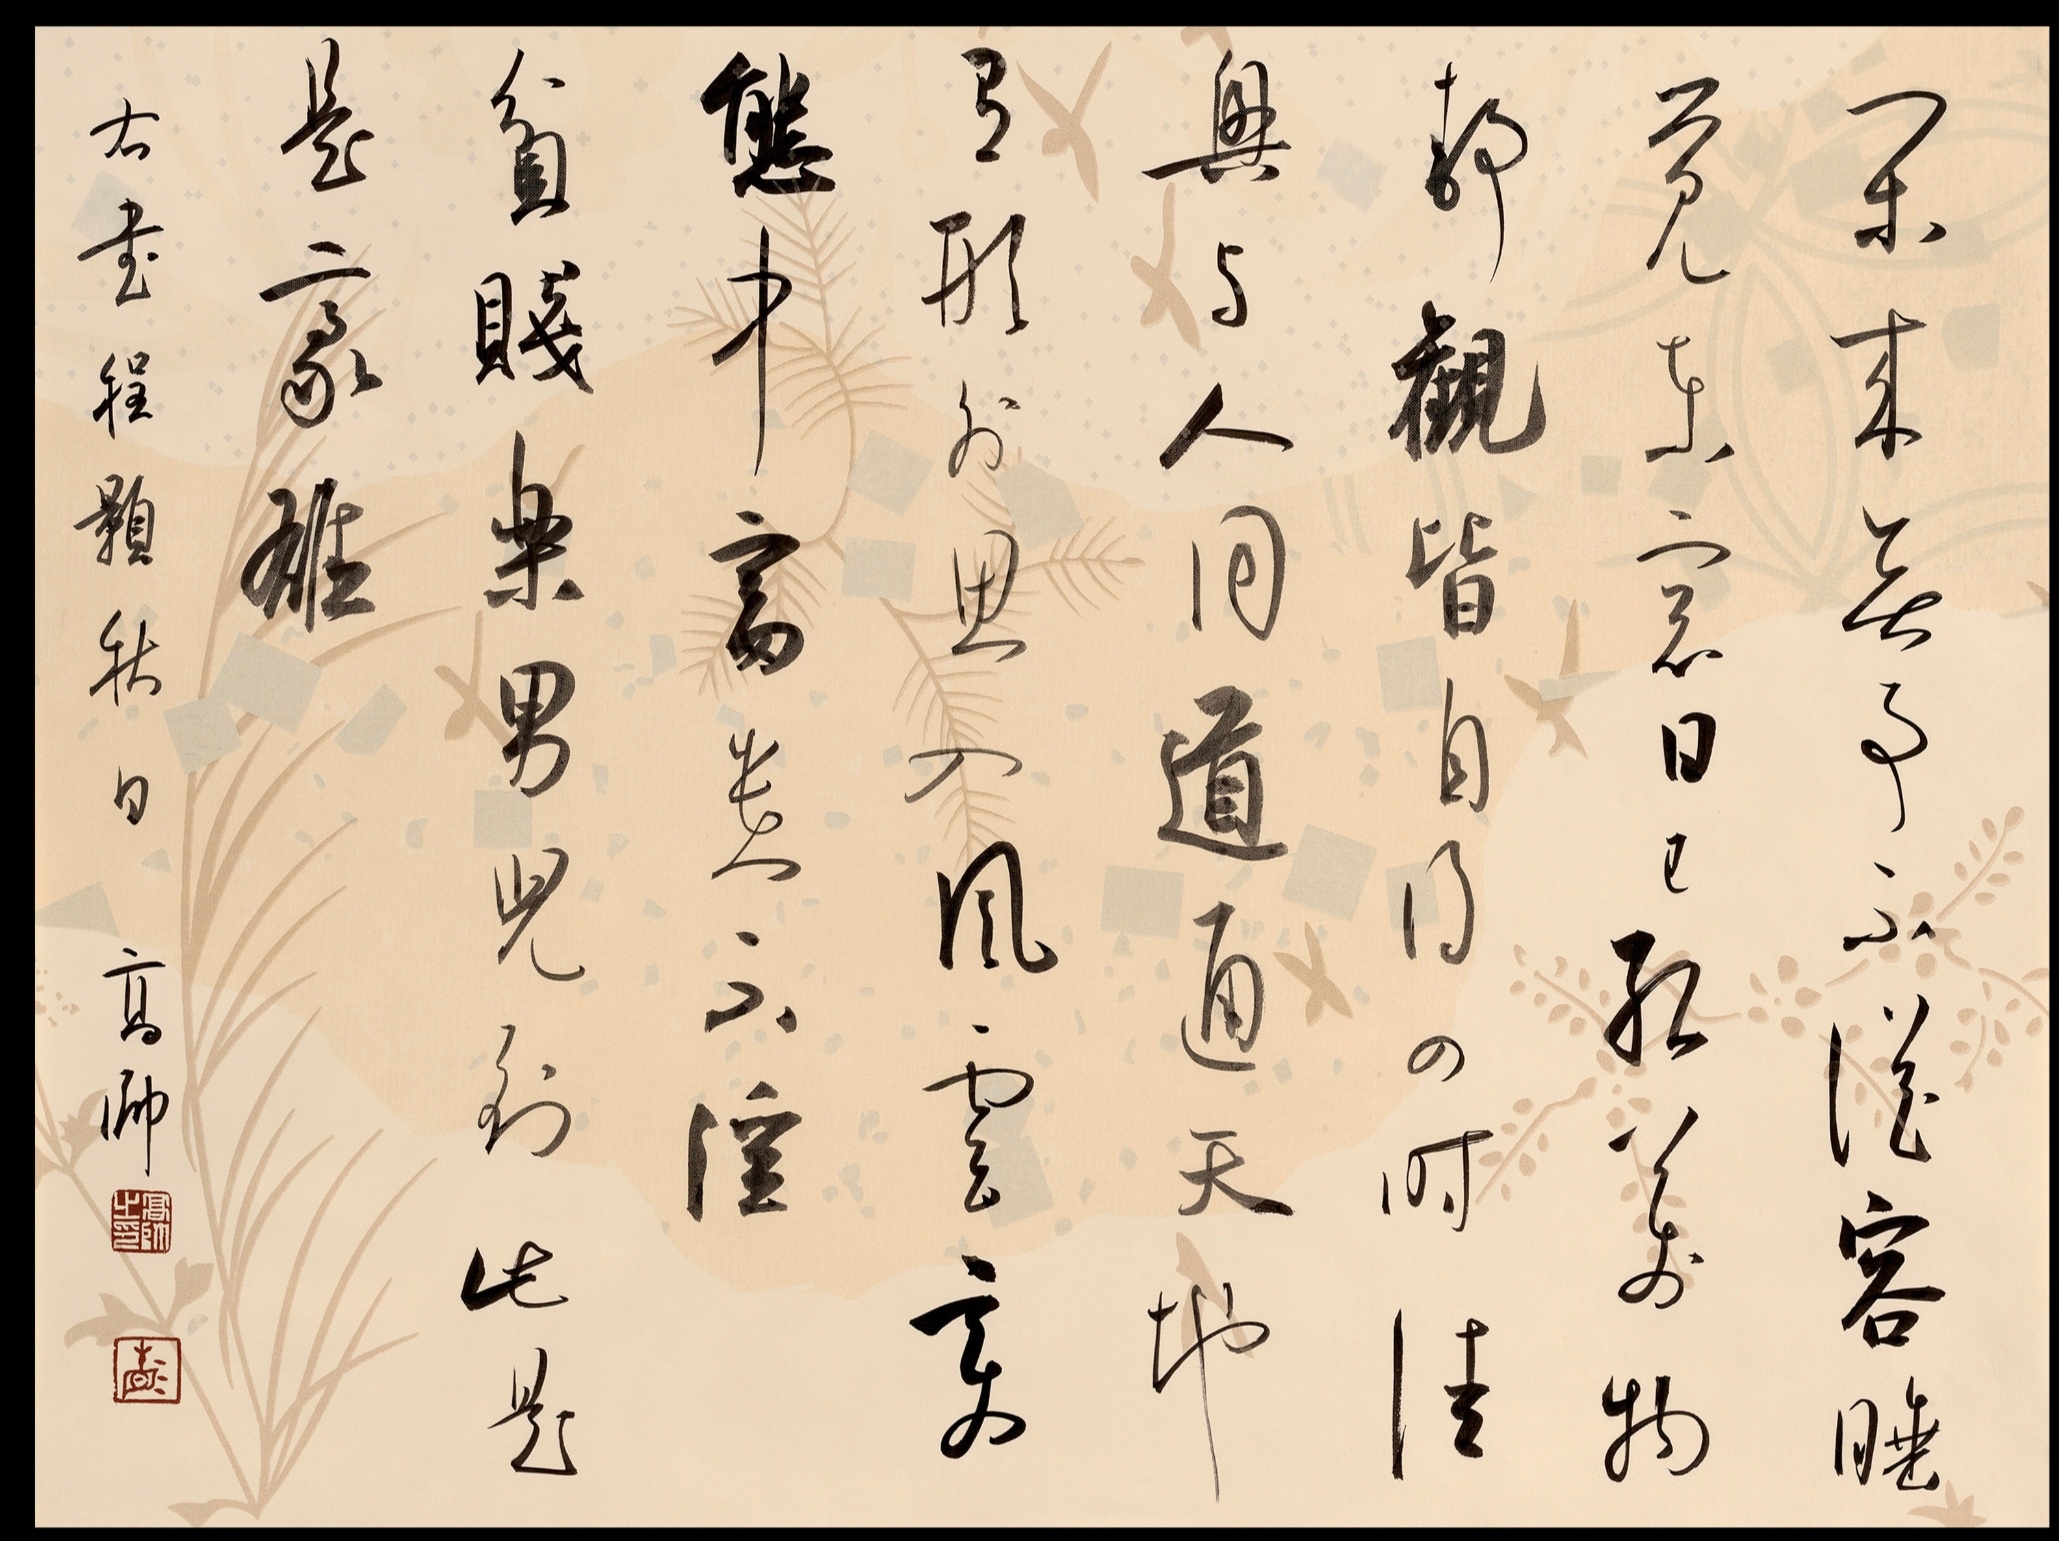 閑来無事不從容睡
覺東窗日已紅萬物
靜觀皆自得四時佳
興与人同道通天地
有形外思入風雲變
態中富貴不淫
貧賤樂男兒到此是
是豪雄
右書程顥秋日 高帥
高帥之印